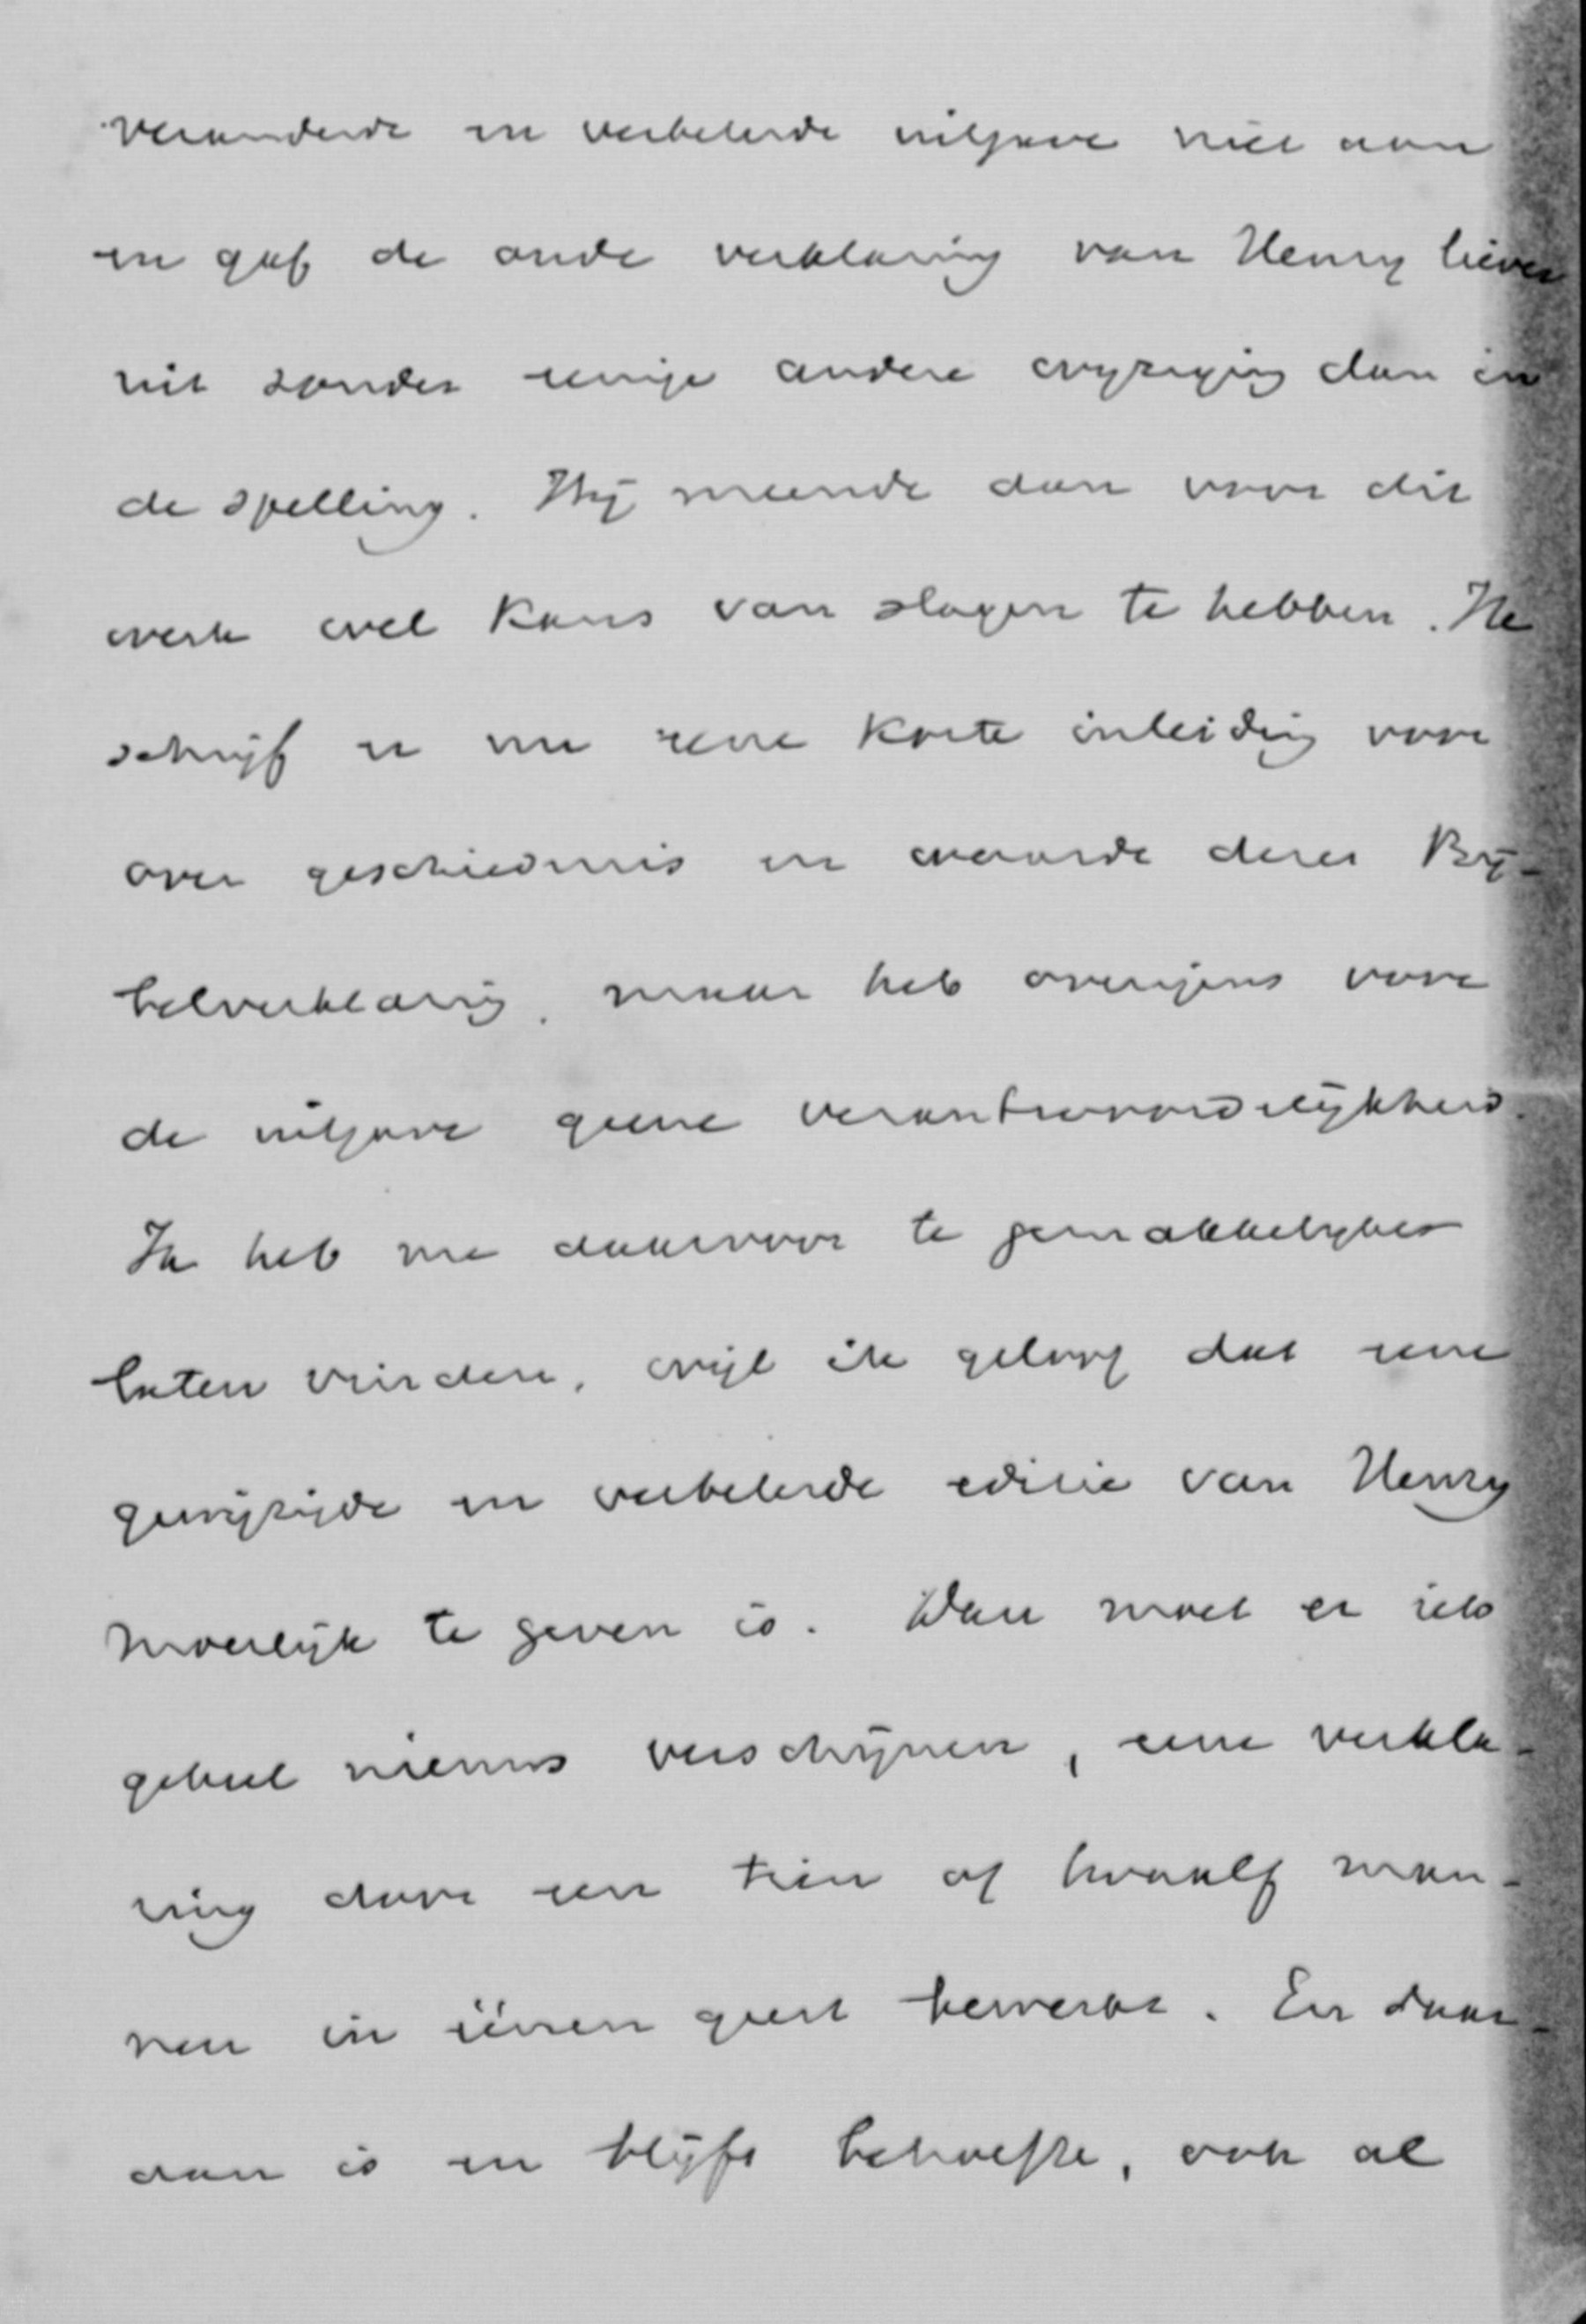 veranderde en verbeterde uitgave niet aan
en gaf de oude verklaring van Henry liever
uit zonder eenige andere wijziging dan in
de spelling. Hij meende dan voor dit
werk wel kans van slagen te hebben. Ik
schrijf er nu eene korte inleiding voor
over geschiedenis en waarde dezer Bij-
belverklaring, maar heb overigens voor
de uitgave geene verantwoordelijkheid.
Ik heb me daarvoor te gemakkelijker
laten vinden, wijl ik geloof dat eene
gewijzigde en verbeterde editie van Henry
moeilijk te geven is. Dan moet er iets
geheel nieuws verschijnen, eene verkla-
ring door een tien of twaalf man-
nen in éénen geest bewerkt. En daar-
aan is en blijft behoefte, ook al